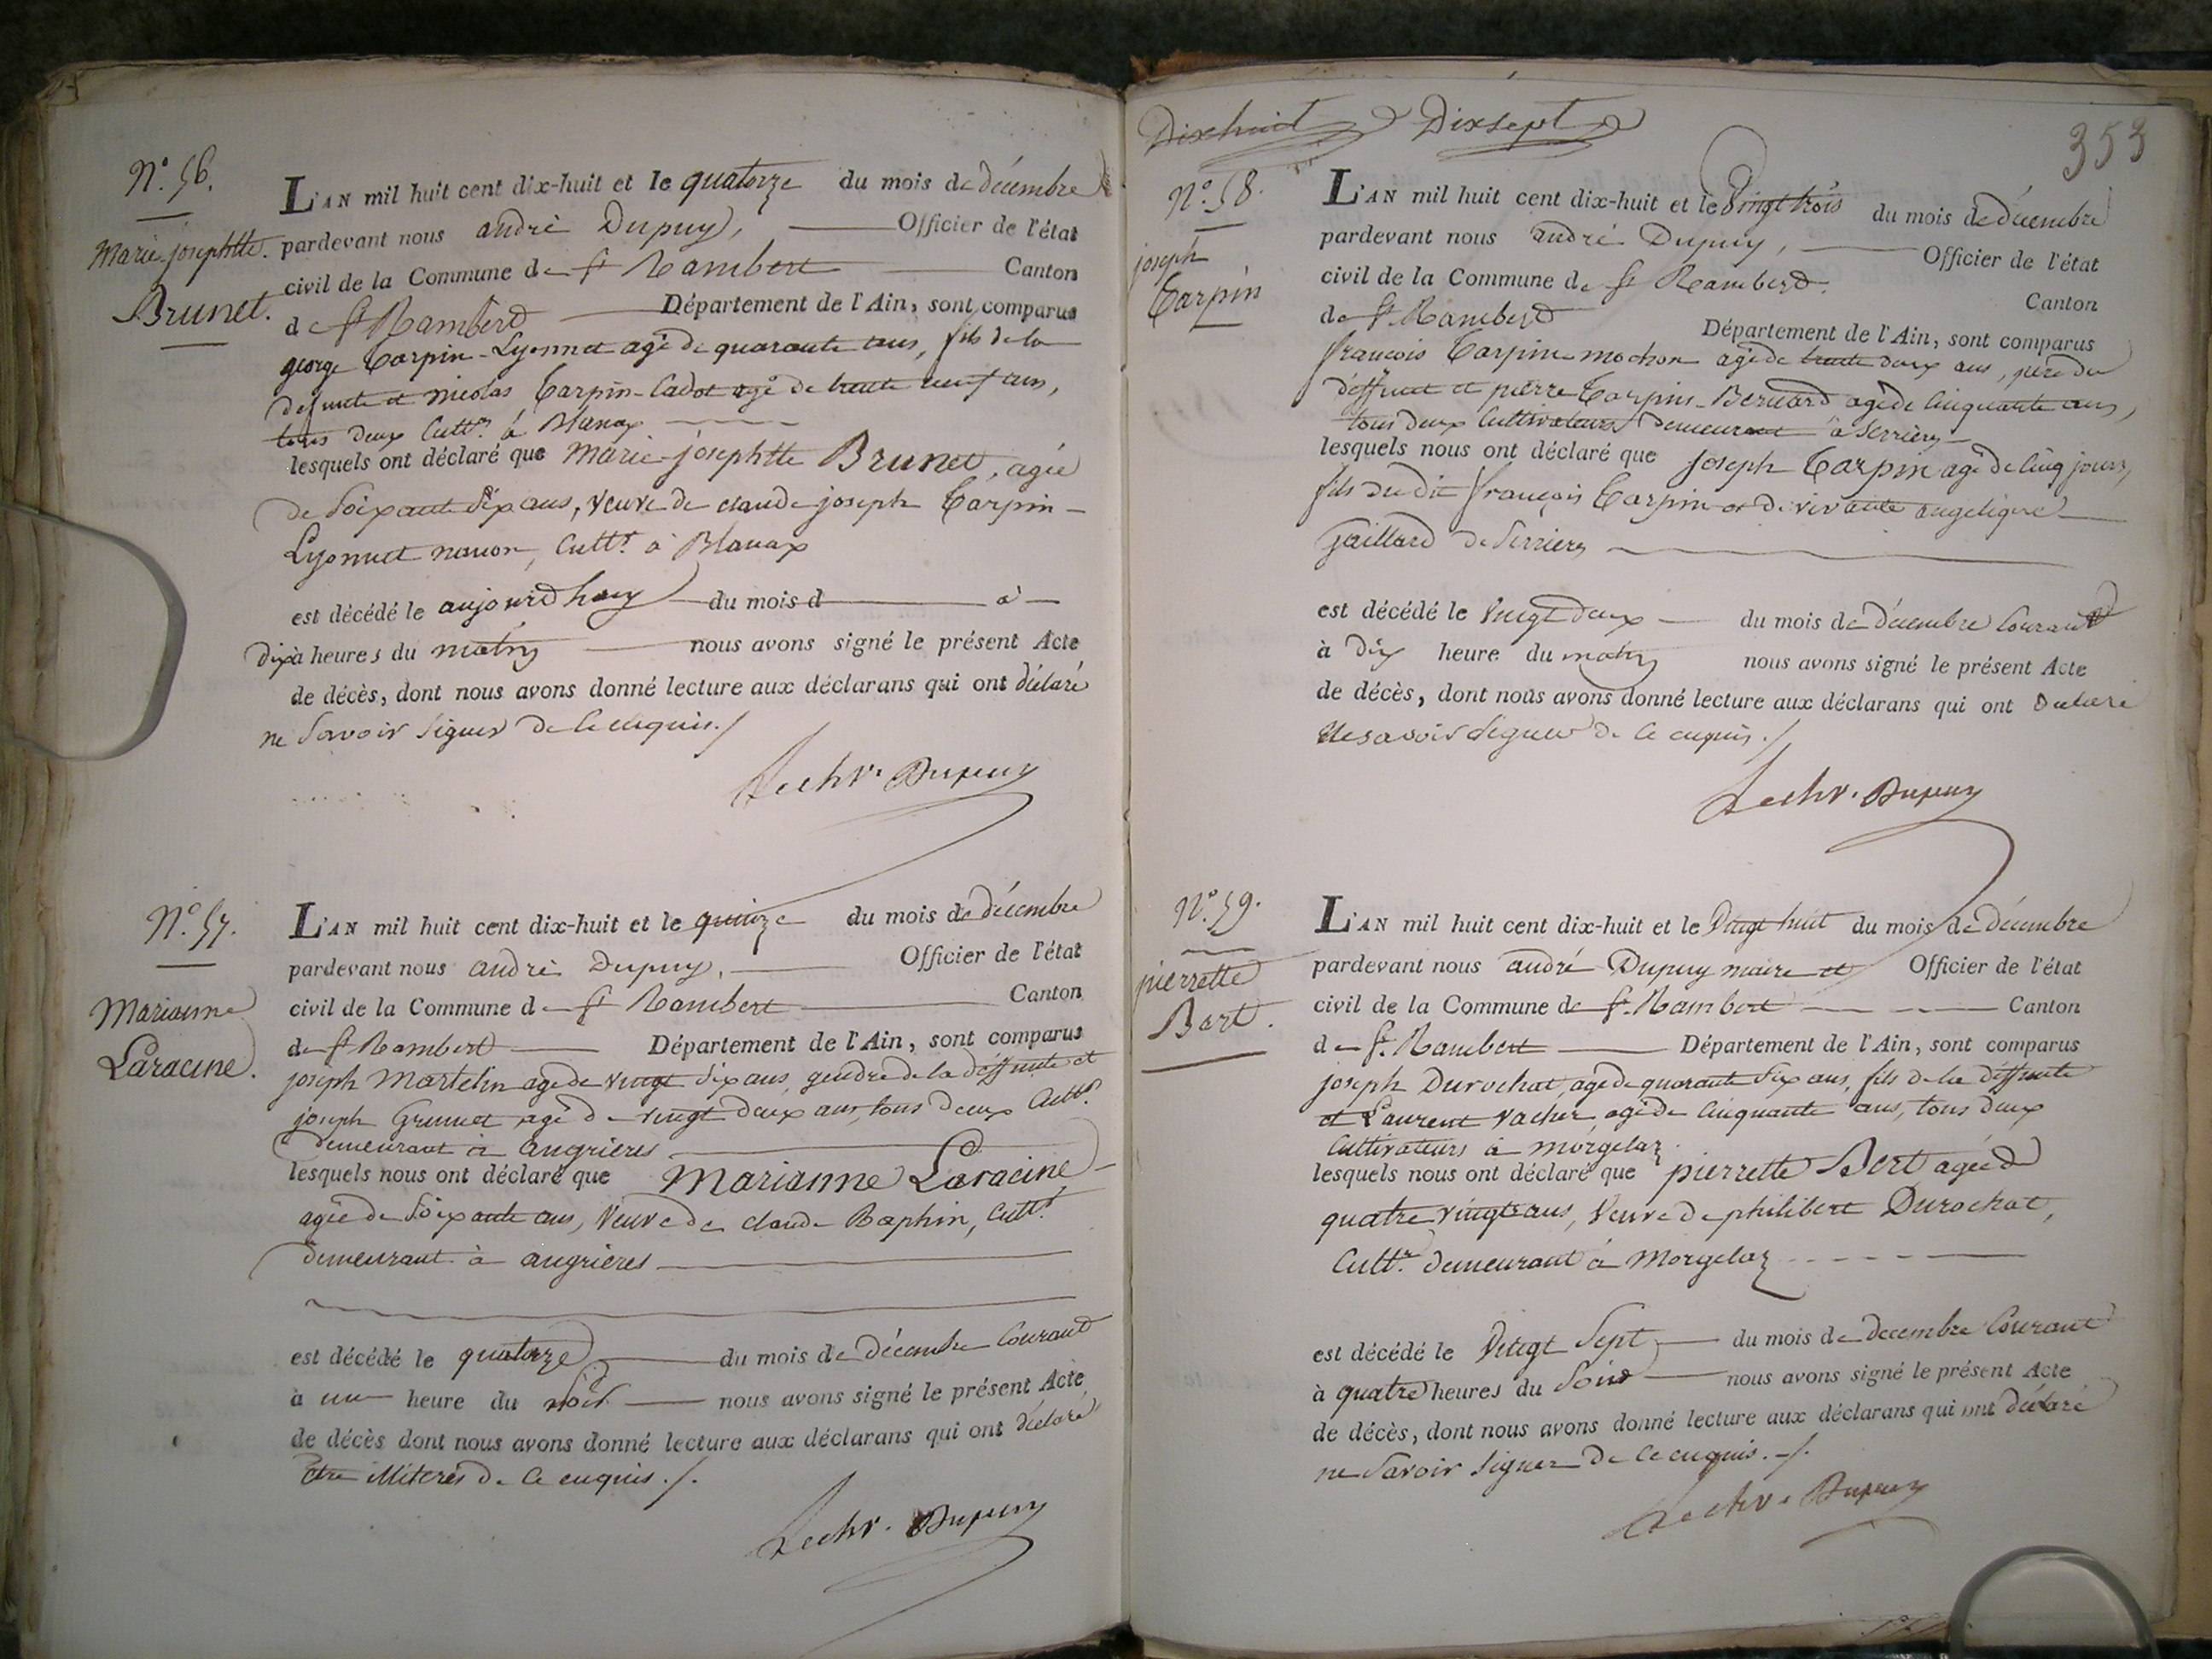 N.° 56.
Marie-josephtte.
Brunet.
L'AN mil huit cent dix-huit et le quatorze du mois de décembre
pardevant nous andré Dupuy, Officier de l'état
civil de la Commune de St Rambert Canton
de St Rambert Département de l'Ain, sont comparus
george Carpin-Lyonnet agé de quarante ans, fils de la
defunte et nicolas Carpin-Cadot agé de trente neuf ans,
tous deux Cultrs à Blanax
lesquels ont déclaré que Marie-josephtte Brunet, agée
de Soixante Six ans, veuve de claude joseph Carpin-
Lyonnet nanon, Cultr à Blanax
est décédé le aujourd'huy du mois d à
dix à heures du matin nous avons signé le présent Acte
de décès, dont nous avons donné lecture aux déclarans qui ont déclaré
ne Savoir Signer de Ce enquis./
Lechr. Dupuy
N.° 57.
Marianne
Laracine.
L'AN mil huit cent dix-huit et le quinze du mois de décembre
pardevant nous andré Dupuy, Officier de l'état
civil de la Commune de St Rambert Canton
de St Rambert Département de l'Ain, sont comparus
joseph Martelin agé de vingt Six ans, gendre de la deffunte et
joseph Grumet agé de vingt deux ans, tous deux Cultrs
demeurant à angrières
lesquels nous ont déclaré que Marianne Laracine
agée de Soixante ans, Veuve de claude Baphin, Cultr
demeurant à angrières
est décédé le quatorze du mois de Décembre Courant
à une heure du Soir nous avons signé le présent Acte
de décès dont nous avons donné lecture aux déclarans qui ont déclaré
être illiterés de Ce enquis./.
Lechr. Dupuy
Dixhuit Dixsept
353
N.° 58.
joseph
Carpin
L'AN mil huit cent dix-huit et le Vingt trois du mois de décembre
pardevant nous andré Dupuy, Officier de l'état
civil de la Commune de St Rambert. Canton
de St Rambert Département de l'Ain, sont comparus
françois Carpin-mochon agé de trente deux ans, père du
deffunt et pierre Carpin-Bernard agé de Cinquante ans,
tous deux Cultivateurs demeurant à Serrières
lesquels nous ont déclaré que joseph Carpin agé de Cinq jours,
fils du dit françois Carpin et de vivante angelique
Gaillard de Serrières
est décédé le Vingt deux du mois de Décembre Courant
à Dix heure du matin nous avons signé le présent Acte
de décès, dont nous avons donné lecture aux déclarans qui ont Declaré
Ne savoir Signer de Ce enquis./
Lechr. Dupuy
N.° 59.
pierrette
Bert.
L'AN mil huit cent dix-huit et le Vingt huit du mois de décembre
pardevant nous andré Dupuy maire et Officier de l'état
civil de la Commune de St. Rambert Canton
de St. Rambert Département de l'Ain, sont comparus
joseph Durochat, agé de quarante Six ans, fils de la deffunte
et Laurent Vacher, agé de Cinquante ans, tous deux
Cultivateurs à morgelaz.
lesquels nous ont déclaré que pierrette Bert agée de
quatre vingts ans, Veuve de philibert Durochat,
Cultr. demeurant à Morgelaz
est décédé le Vingt Sept du mois de decembre Courant
à quatre heures du Soir nous avons signé le présent Acte
de décès, dont nous avons donné lecture aux déclarans qui ont déclaré
ne Savoir Signer de Ce enquis./.
Lechr. Dupuy